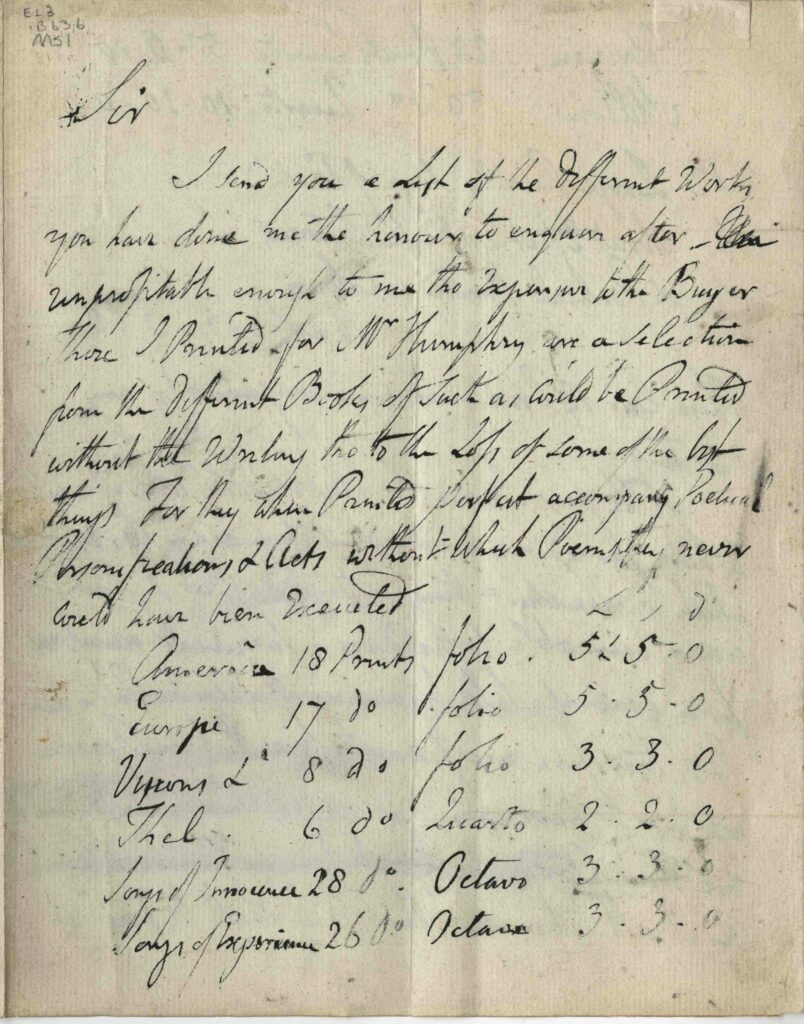 EL3
.B63.6
MS1
Sir
I send you a List of the different Works
you have done me the honour to enquire after
unprofitable enough to me tho Expensive to the Buyer
Those I Printed for Mr Humphry are a selection
from the different Books of such as could be Printed
without the Writing tho to the Loss of some of the best
things For they when Printed perfect accompany Poetical
Personifications & Acts without which Poems they never
could have been Executed
£ s d
America 18 Prints folio . 5 5 - 0
Europe 17 do folio 5 . 5 . 0
Visions & 8 do folio 3 . 3 . 0
Thel . 6 do Quarto 2 . 2 . 0
Songs of Innocence 28 do . Octavo 3 . 3 . 0
Songs of Experience 26 do Octavo 3 . 3 . 0